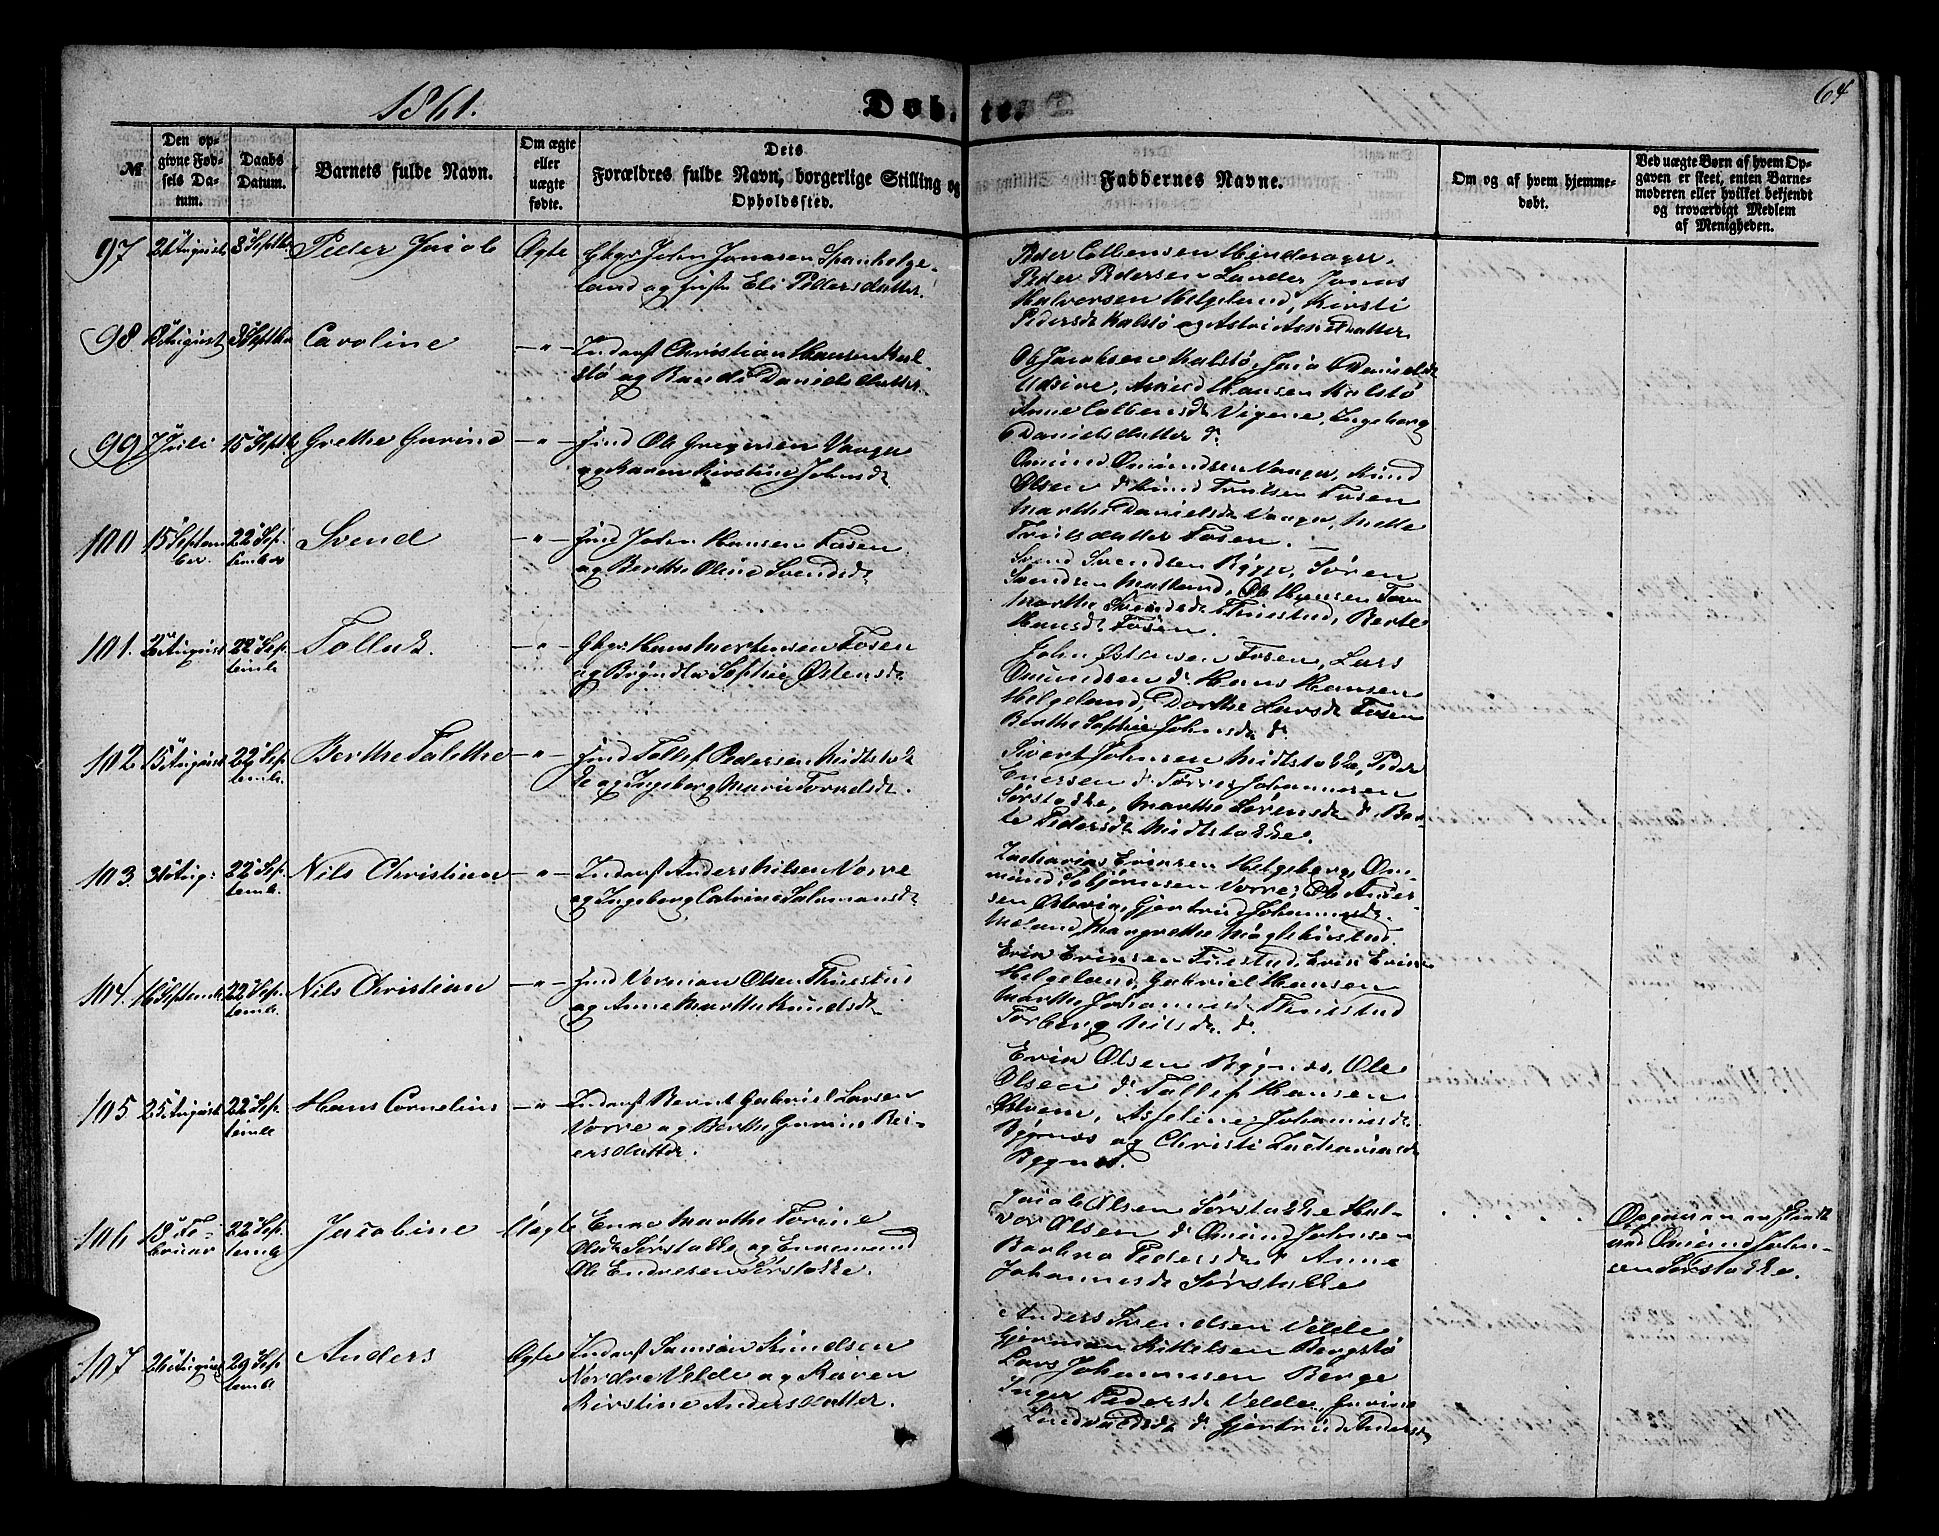 1861.
Døbte.
64
№
Den op-
givne Fød-
sels Da-
tum.
Daabs
Datum.
Barnets fulde Navn.
Om ægte
eller
uægte
fødte.
Dets
Forældres fulde Navn, borgerlige Stilling og
Opholdssted.
Faddernes Navne.
Om og af hvem hjemme-
døbt.
Ved uægte Børn af hvem Op-
gaven er skeet, enten Barne-
moderen eller hvilket bekjendt
og troværdigt Medlem
af Menigheden.
97
21 August
8 Septbr
Peder Jacob
Ægte
Gbgr John Jonassen Spanhelge-
land og Eli Pedersdatter.
Peder Colbensen Hinderager,
Peder Pedersen Sandee, Jonas
Halvorsen Helgeland, Kirsti
Pedersdt Kalstø og Astri Asseldatter
98
August
8 Septbr
Caroline
-"-
Inderst Christian Hansen Kal-
stø og Randi Danielsdatter.
Ole Jacobsen Kalstø, Danielsdt
Udvive, Hansen Kalstø
Anne Colbensdt Vigene, Ingeborg
Danielsdatter d:
99
7 Juli
15 Septb
Grethe Gurine
-"-
Ole Gregersen Vaager
og Karen Kirstine Johnsdt
Omund Omundsen Vaager, Knud
Olsen d: Knud Fosen
Marthe Danielsdt Vaager, Mette
Fosen.
100
15 Septem-
ber.
22 Sep-
tember
Svend
-"-
John Hansen Fosen
og Berthe Oline Svendsdt
Svend Svendsen Bygge, Sören
Svendsen Matland, Ole Hansen Fosen
Marthe Svendsdt Thuestad, Berte
Hansdt Fosen.
101.
August
22 Sep-
tembr
Tollak.
-"-
Gbgr Hans Mortensen Fosen
og Sophie Østensdt
John Østensen Fosen, Lars
Omundsen d: Hans Hansen
Helgeland, Dorthe Larsdt Fosen
Berthe Sophie Johnsdt d:
102
15 August
22 Sep-
tembr.
Berthe Talethe
-"-
Tollef Pedersen Midtstok-
ke og Ingeborg Marie
Sivert Johnsen Midtstokke, Peder
Enersen d: Johannesen
Sørstokke, Marthe Sörensdt d: Ber-
te Pedersdt Midtstokke.
103.
Aug:
22 Sep-
temb.
Nils Christian
-"-
Inderst Anders Nilsen Vorre
og Ingeborg Catrine Salomonsdt
Zacharias Ericsen Helgeberg, Om-
und Vorre, Ole
Gjertrud Johannesdt
Meland, Margrethe
104.
16 Septemb
22 Sep-
temb.
Nils Christian
-"-
Olsen Thuestad
og Anne Marthe Knudsdt
Erik Ericsen Tuestad, Erik Ericsen
Helgeland, Gabriel Hansen
Marthe Johannesdt Thuestad
Torberg Nilsdt d:
105
25 August
22 Sep-
tembr
Hans Cornelius
-"-
Inderst Bernt Gabriel Larsen
Vorre og Berthe Gurine Rei-
ersdatter.
Erik Olsen Bygnes, Ole
Olsen d: Tollef Hansen
Østrem, Asseline Johannesdt
Bygnes og Christi Zachariasdt
Bygnes.
106
Fe-
bruar
22 Sep-
temb
Jacobine
Uægte
Enke Marthe Torine
Olsdt Sørstokke og Enkemand
Ole Endresen Sørstokke.
Jacob Olsen Sørstokke, Hal-
vor Olsen d: Omund Johnsen
Barbro Pedersdt d: Anne
Johannesdt Sørstokke
Opgaven
ved Omund John-
sen Sørstokke.
107
26 August
29 Sep-
tembr
Anders
Ægte
Inderst Samson Knudsen
Nordre Velde og Karen
Kirstine Andersdatter.
Anders Svendsen Velde
Gjerman Kittelsen Bergstø
Lars Johannesen Berge
Inger Pedersdt Velde,
d: Gjertrud Andersdt